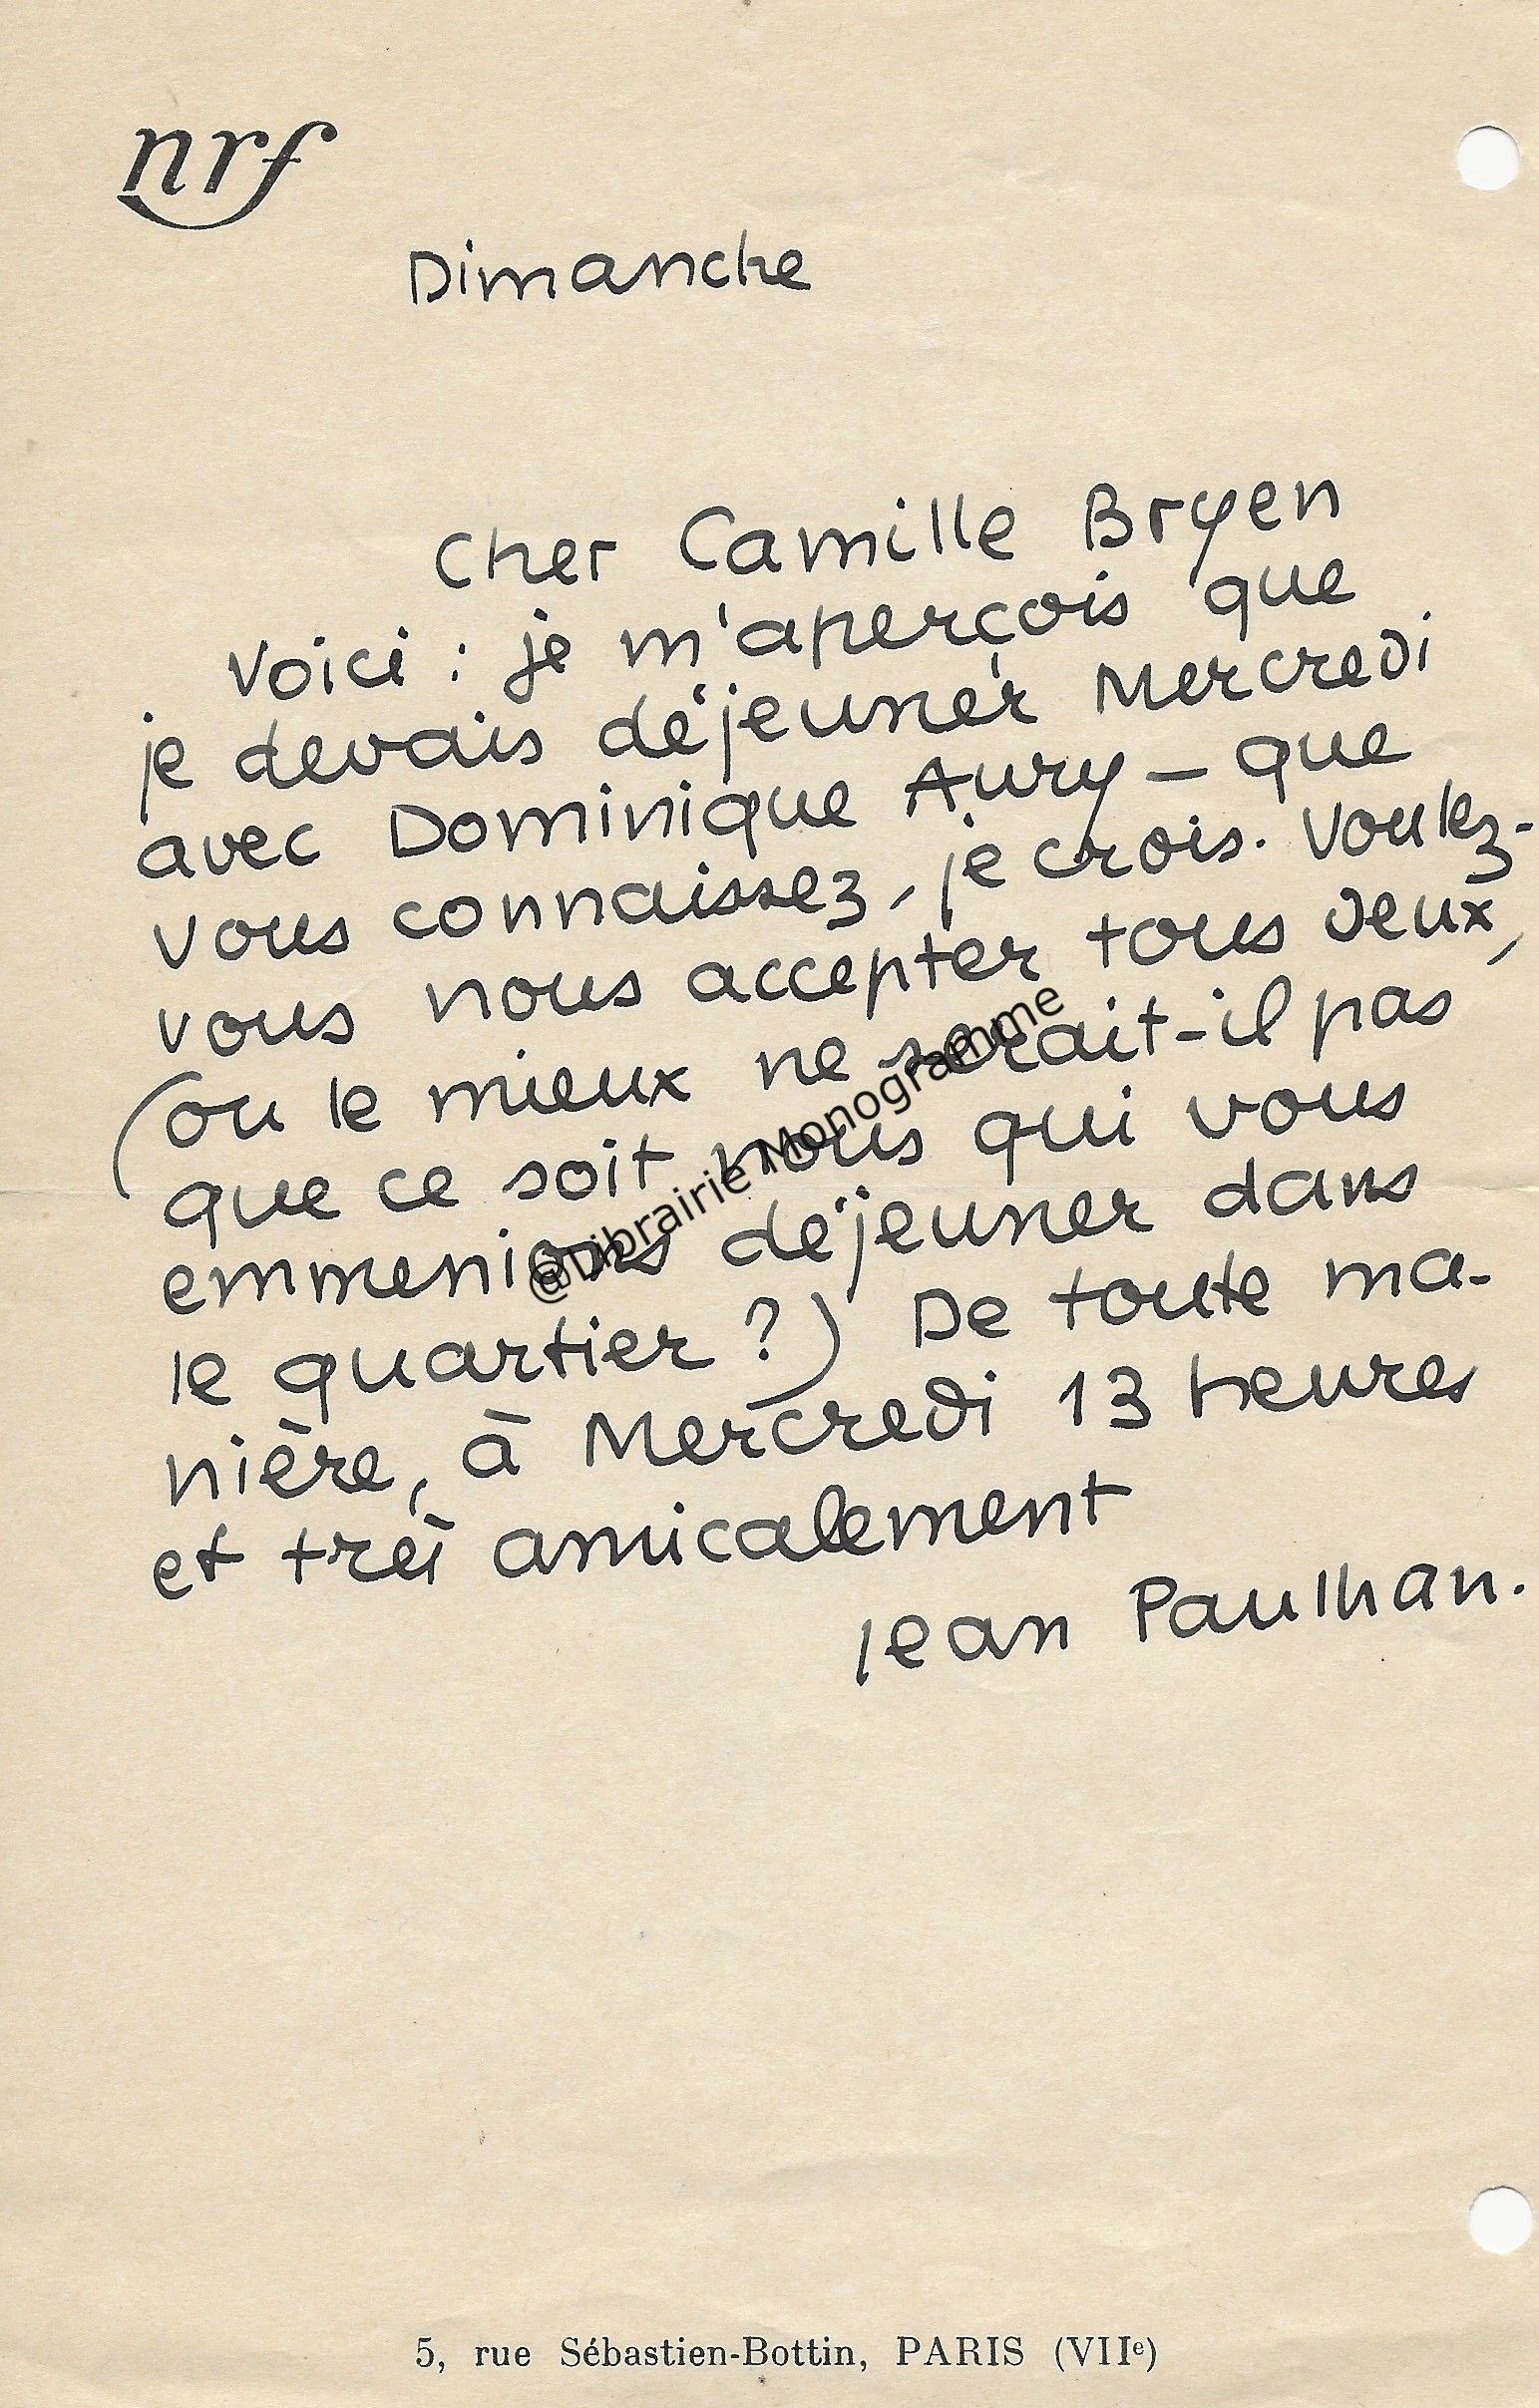 nrf
Dimanche
Cher Camille Bryen
Voici : je m'aperçois que
je devais déjeuner Mercredi
avec Dominique Aury – que
vous connaissez, je crois. Voulez-
vous nous accepter tous deux,
(ou le mieux ne serait-il pas
que ce soit nous qui vous
emmenions déjeuner dans
le quartier ?) De toute ma-
nière, à Mercredi 13 heures
et très amicalement
Jean Paulhan.
@Librairie Monogramme
5, rue Sébastien-Bottin, PARIS (VIIe)